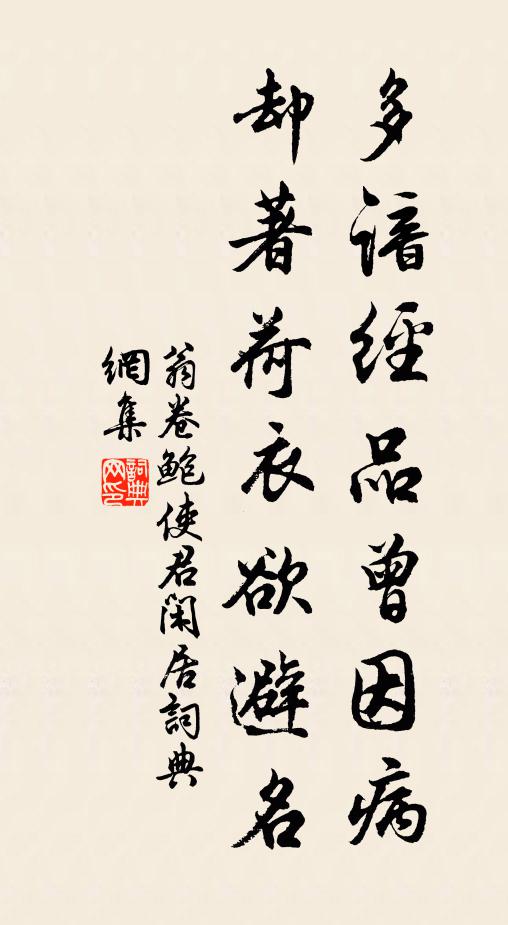 多諳經品曾因病
却著荷衣欲避名
翁卷鮑使君閑居詞典
網集
詞典网印